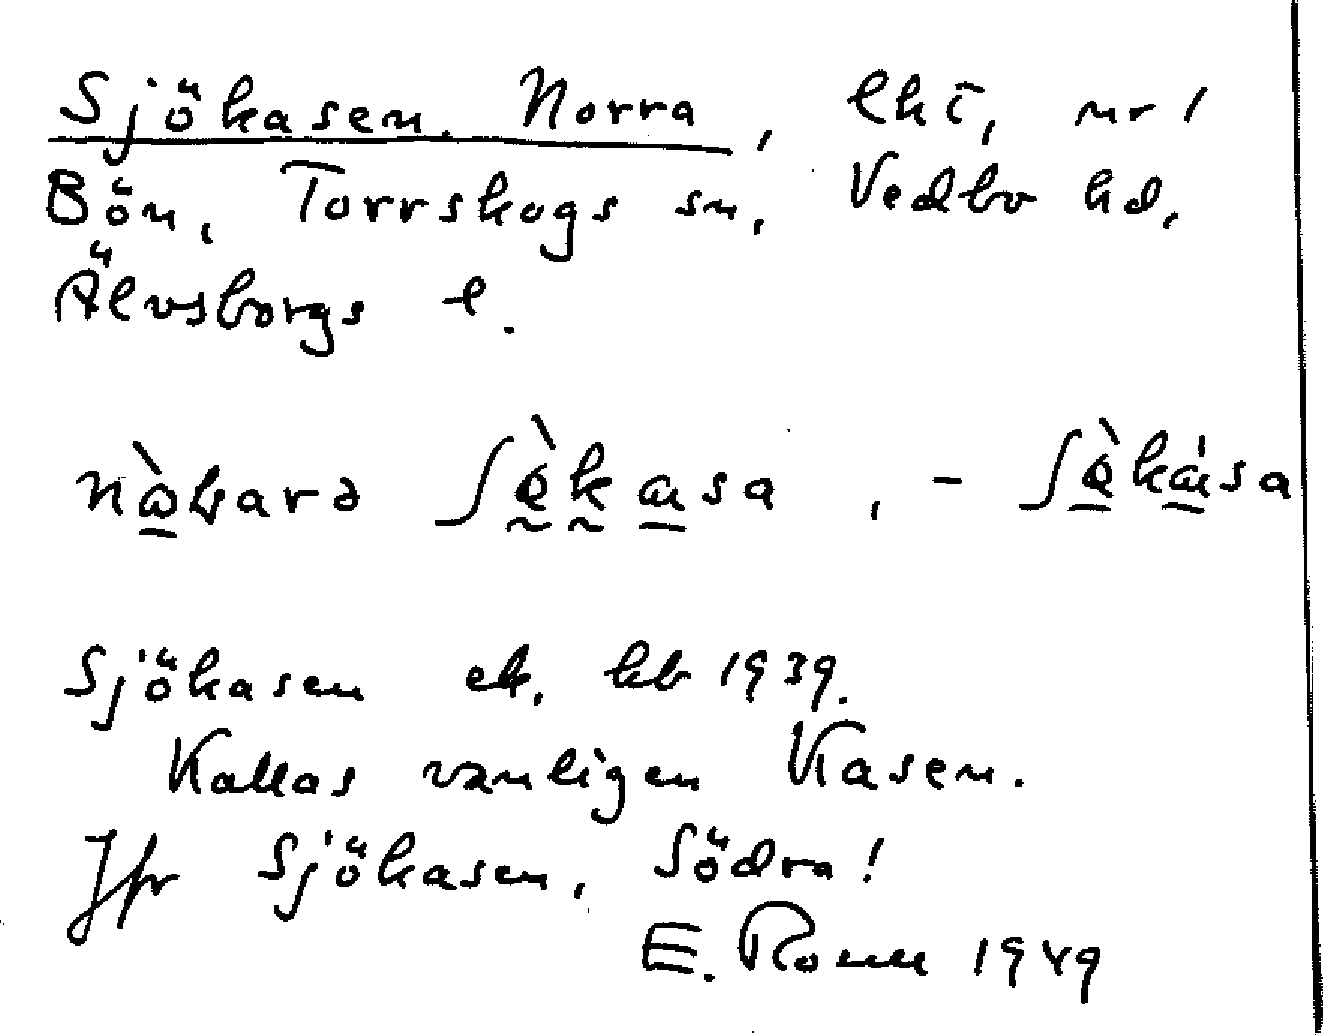 Sjökasen. Norra, lht, nr 1
Bön, Torrskogs sn, Vedbo hd,
Älvsborgs l.
Sjökasen ek. kb 1939.
Kallas vanligen Kasen.
Jfr Sjökasen, Södra!
E. 1949